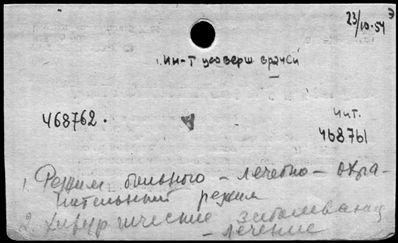 23/10-54 Э
Ин-т усоверш врачей
468762.
Чит.
468761
1. Режим больного - лечебно - охра-
нительный режим
2. Хирургические заболевания
- лечение